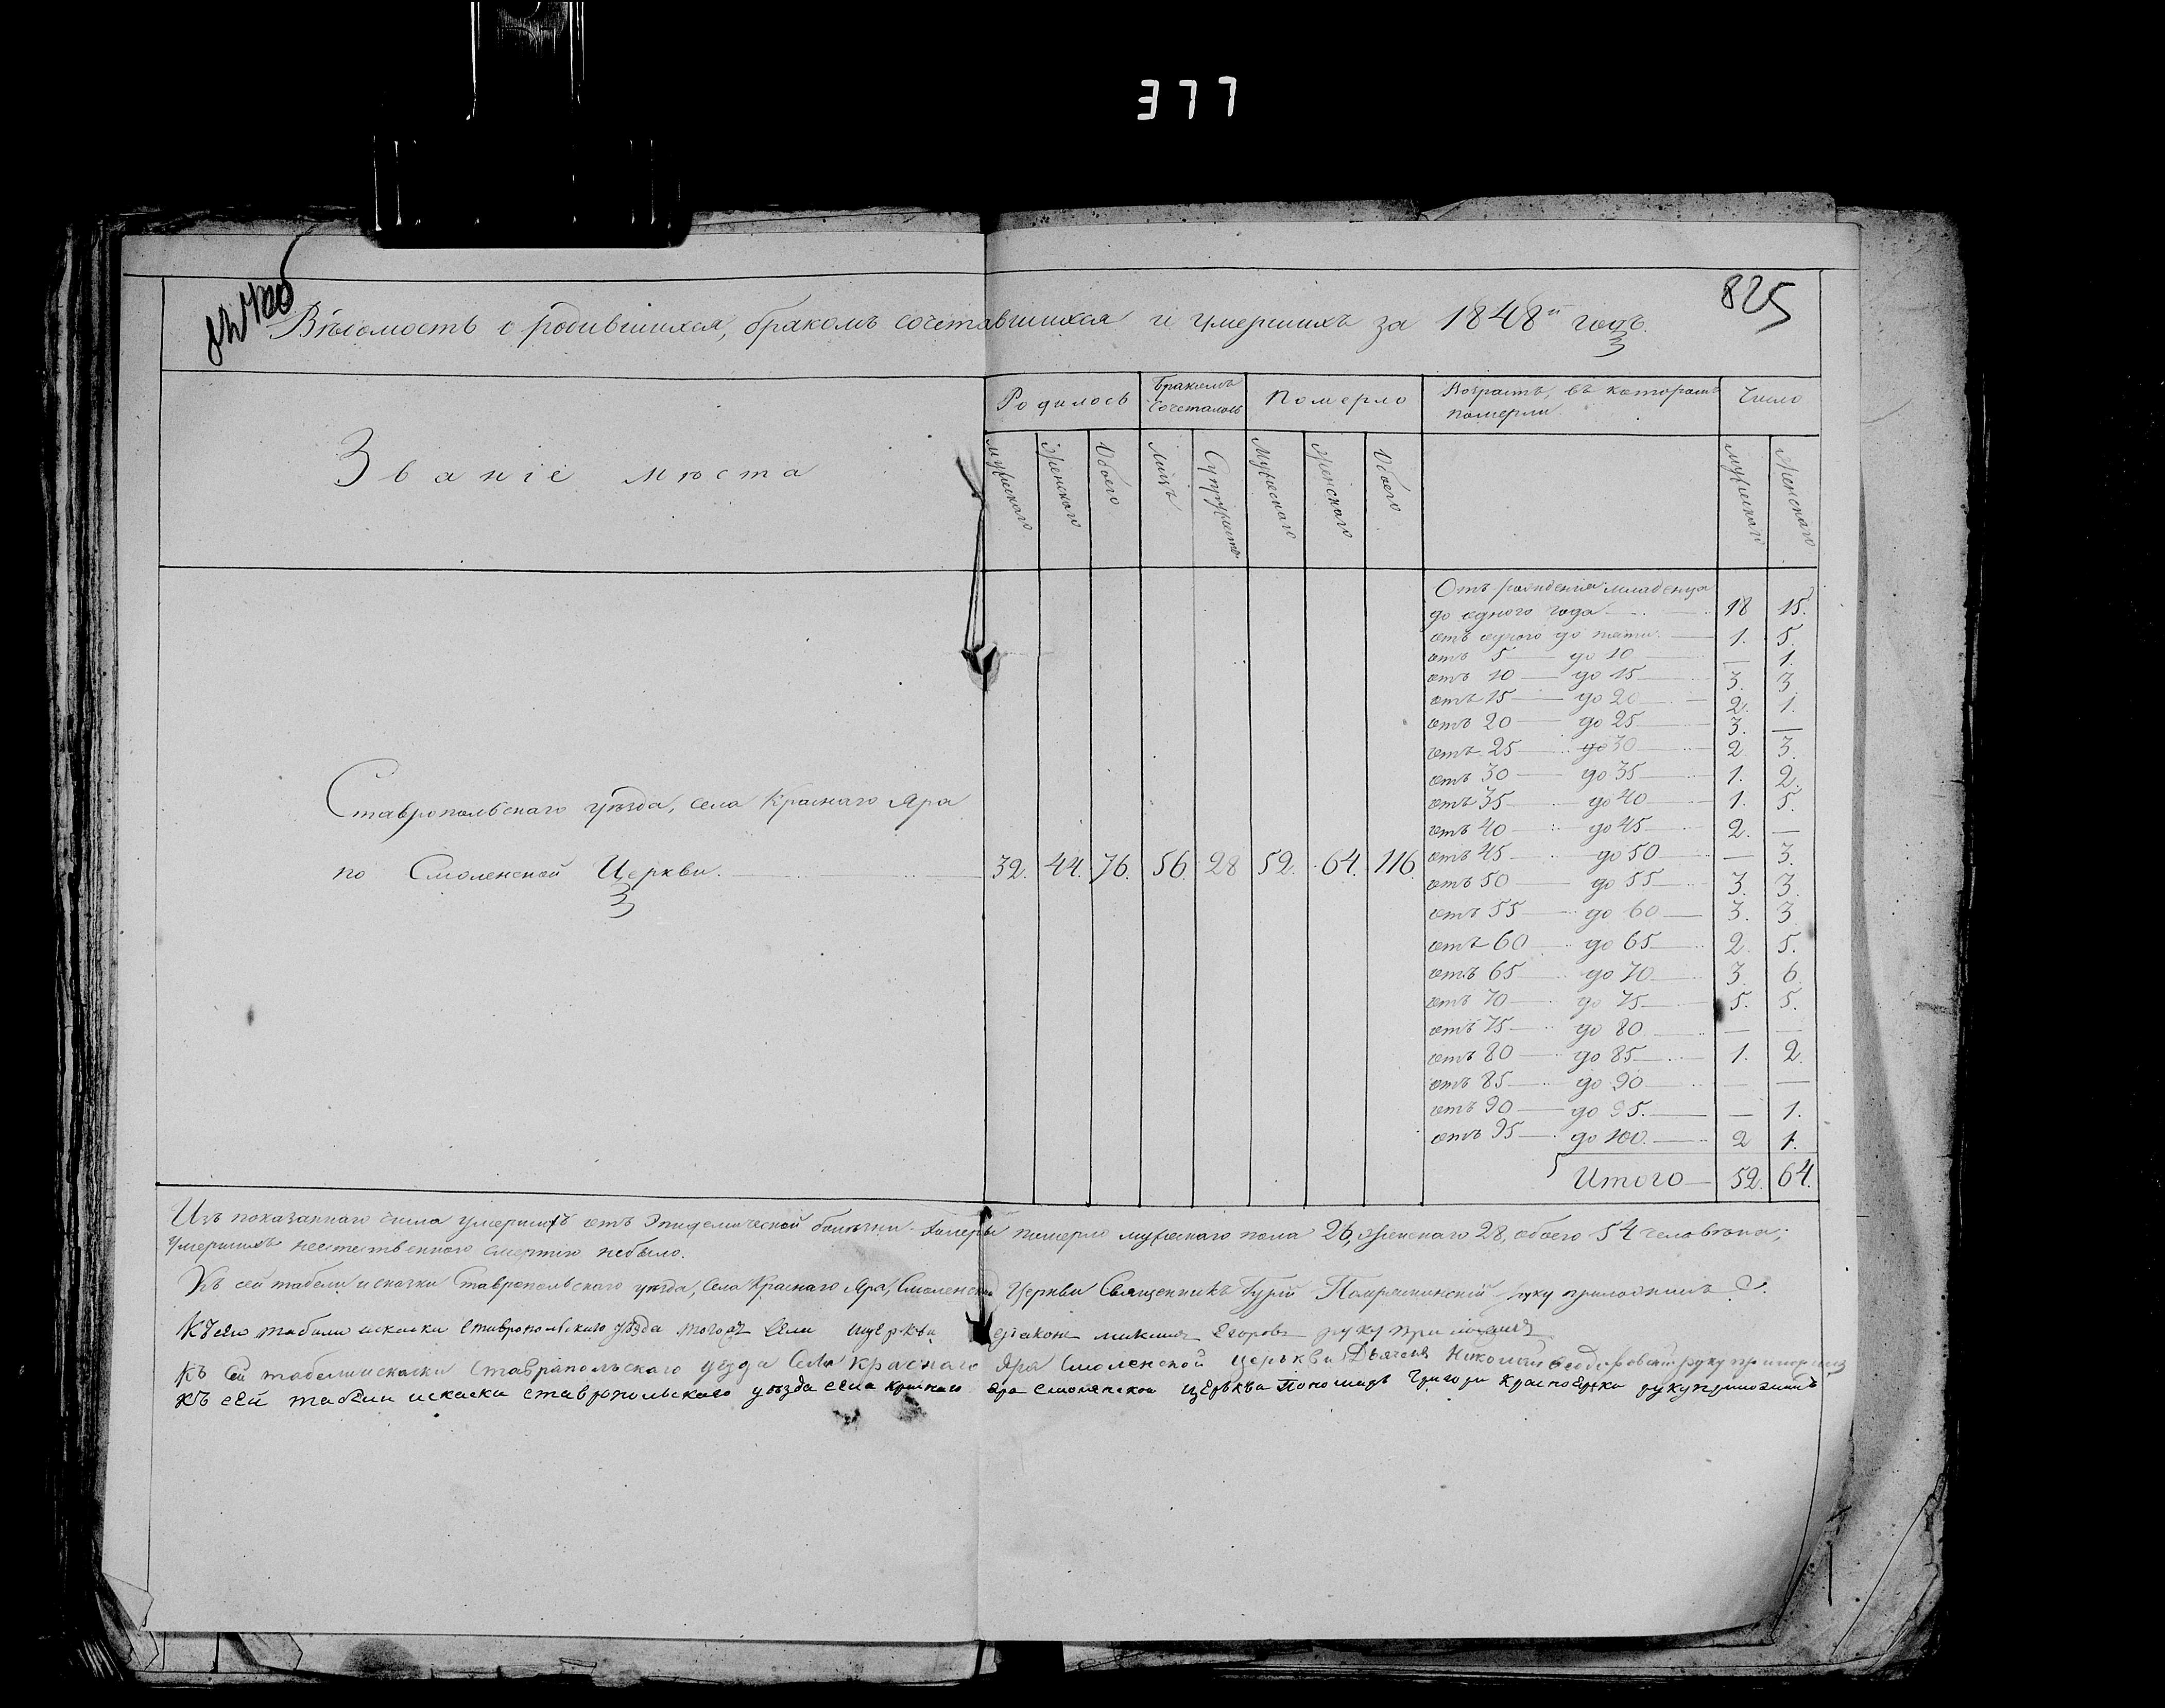 377
825
Вѣдомость о родившихся, бракомъ сочетавшихся и умершихъ за 1848й годъ.
Званіе мѣста
Родилось
Бракомъ сочеталось
Померло
Возрастъ, въ которомъ померли
Число
Мужескаго Женскаго Обоего Лицъ Супружествъ Мужескаго Женскаго Обоего Мужескаго Женскаго
Ставропольскаго уѣзда, села Краснаго Яра
по Смоленской Церкви. 32. 44. 76. 56. 28 52. 64. 116.
Отъ рожденія младенца
до одного года 18 15.
отъ одного до пяти 1. 5.
отъ 5 до 10 — 1.
отъ 10 до 15 3. 3.
отъ 15 до 20 2. 1.
отъ 20 до 25 3. —
отъ 25 до 30 2 3.
отъ 30 до 35 1. 2.
отъ 35 до 40 1. 5.
отъ 40 до 45 2. —
отъ 45 до 50 — 3.
отъ 50 до 55 3. 3.
отъ 55 до 60 3. 3
отъ 60 до 65 2. 5.
отъ 65 до 70 3. 6.
отъ 70 до 75 5. 5.
отъ 75 до 80 — —
отъ 80 до 85 1. 2.
отъ 85 до 90 — —
отъ 90 до 95. — 1.
отъ 95 до 100. 2 1.
Итого 52. 64.
Изъ показаннаго числа умершихъ отъ эпидемической болѣзни холеры померло мужескаго пола 26, женскаго 28, обоего 54 человѣка;
умершихъ неестественною смертію небыло.
Къ сей табели и сказки Ставропольскаго уѣзда, села Краснаго Яра, Смоленской Церкви Священникъ Гурій руку приложилъ
Къ сей табели искаски ставропольскаго уѣзда тогожъ села церкви Егоровъ руку приложилъ
Къ сей табели искаски Ставропольскаго уезда села Краснаго Яра Смоленской церькви Дьячекъ Николай руку
Къ сей табели искаски ставропольскаго уѣзда села краснаго яра смоленской церькви Пономарь Григори руку приложилъ